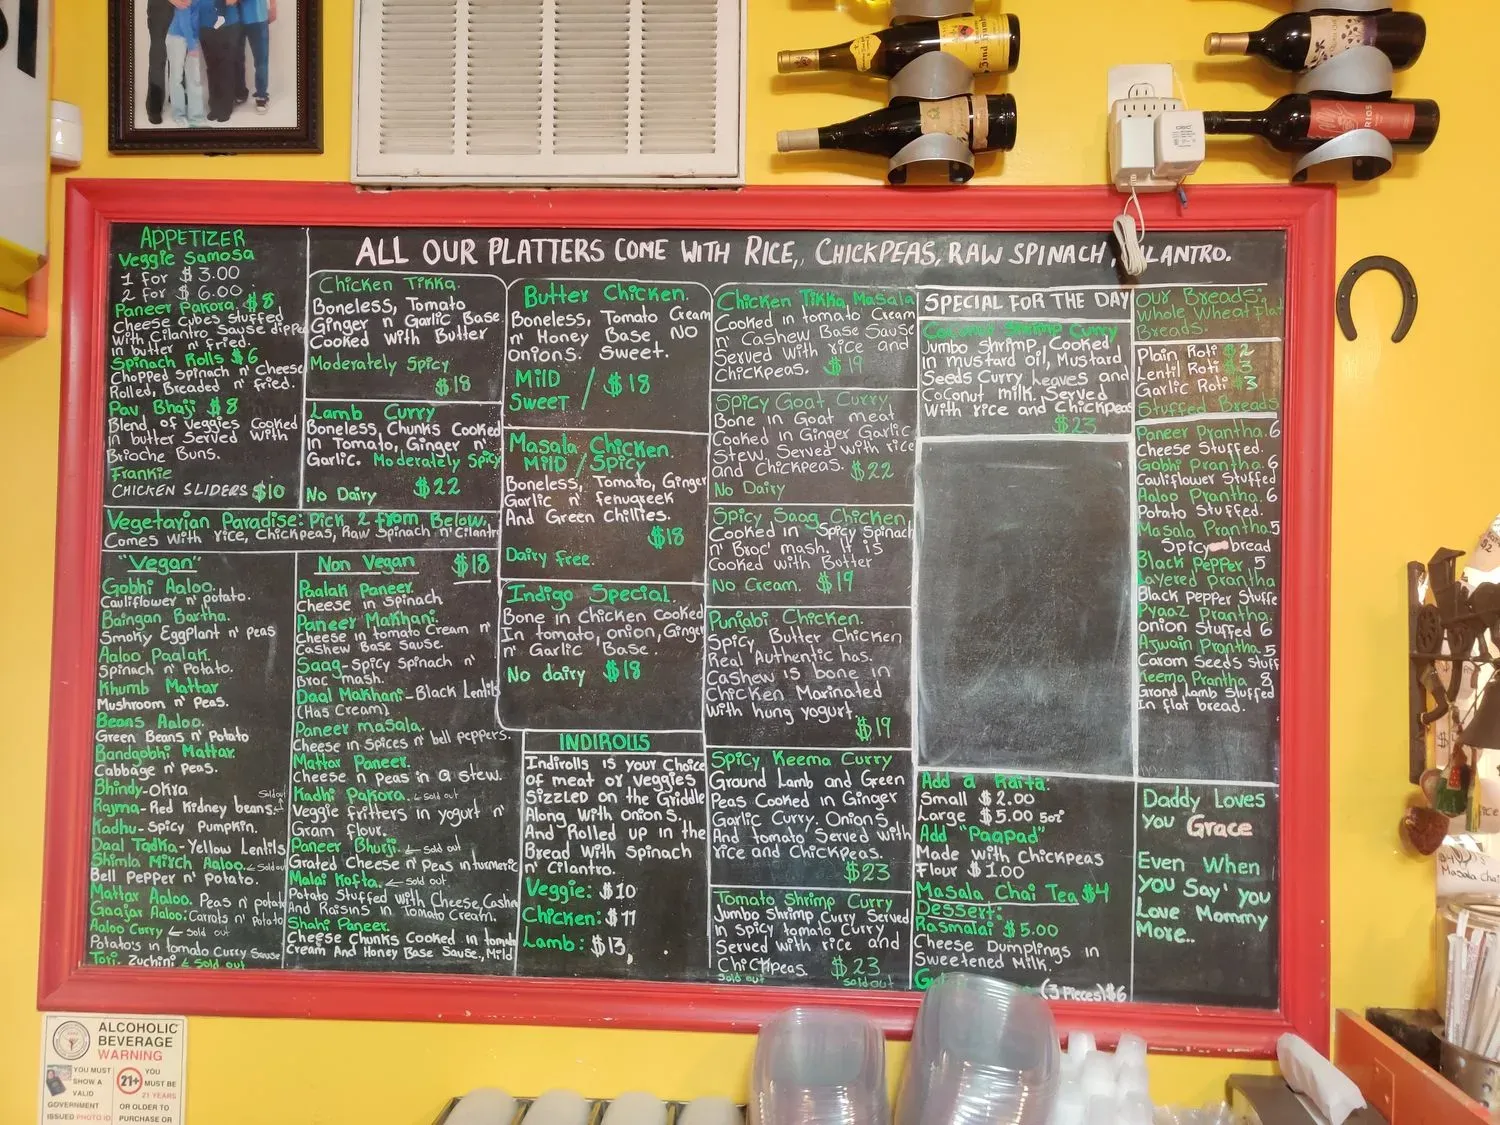 ALL OUR PLATTERS COME WITH RICE, CHICKPEAS, RAW SPINACH, CILANTRO.
APPETIZER
Veggie Samosa
1 for $3.00
2 for $6.00
Paneer Pakora $8
Cheese Cubes stuffed
With Cilantro Sause dipped
in butter n' fried.
Spinach Rolls $6
Chopped Spinach n' Cheese
Rolled, Breaded n' fried.
Pav Bhaji $8
Blend of Veggies Cooked
In butter Served With
Brioche Buns.
Frankie
CHICKEN SLIDERS $10
Chicken Tikka.
Boneless, Tomato
Ginger n Garlic Base
Cooked with Butter
Moderately Spicy
$18
Lamb Curry
Boneless, Chunks Cooked
In Tomato, Ginger n'
Garlic. Moderately Spicy
No Dairy $22
Vegetarian Paradise: Pick 2 from Below,
Comes with rice, Chickpeas, Raw Spinach n' Cilantro
"Vegan"
Gobhi Aaloo.
Cauliflower n' Potato.
Baingan Bartha.
Smoky Eggplant n' Peas
Aaloo Paalak.
Spinach n' Potato.
Khumb Mattar
Mushroom n' Peas.
Beans Aaloo.
Green Beans n' Potato
Bandgobhi Mattar.
Cabbage n' Peas.
Bhindy-Okra
Rajma-Red Kidney beans. Sold out
Kadhu-Spicy Pumpkin.
Daal Tadka-Yellow Lentils
Shimla Mirch Aaloo. ← Sold out
Bell Pepper n' Potato.
Mattar Aaloo. Peas n' potato
Gaajar Aaloo: Carrots n' Potato
Aaloo Curry ← Sold out
Potato's in tomato Curry Sause
Tori. Zuchini ← Sold out
Non Vegan $18
Paalak Paneer.
Cheese in Spinach
Paneer Makhani.
Cheese in tomato Cream n'
Cashew Base Sause.
Saag-Spicy Spinach n'
Broc mash.
Daal Makhani-Black Lentils
(Has Cream)
Paneer masala.
Cheese in Spices n' bell peppers.
Mattar Paneer.
Cheese n Peas in a stew.
Kadhi Pakora. ← Sold out
Veggie fritters in yogurt n'
Gram flour.
Paneer Bhurji. ← Sold out
Grated Cheese n' Peas in turmeric
Malai Kofta. ← Sold out
Potato Stuffed with Cheese, Cashew
And Raisins in Tomato Cream.
Shahi Paneer.
Cheese Chunks Cooked in tomato
Cream And Honey Base Sause, Mild
Butter Chicken.
Boneless, Tomato Cream
n' Honey Base NO
onions. Sweet.
Mild
Sweet / $18
Masala Chicken
MILD / Spicy
Boneless, Tomato, Ginger
Garlic n' fenugreek
And Green Chillies.
$18
Dairy free.
Indigo Special.
Bone in Chicken Cooked
In tomato, onion, Ginger
n' Garlic Base.
No dairy $18
INDIROLLS
Indirolls is your Choice
of meat or veggies
Sizzled on the Griddle
Along with onions.
And Rolled up in the
Bread With Spinach
n' Cilantro.
Veggie: $10
Chicken: $11
Lamb: $13
Chicken Tikka Masala
Cooked in tomato Cream
n' Cashew Base Sause
Served with rice and
Chickpeas. $19
Spicy Goat Curry
Bone in Goat meat
Cooked in Ginger Garlic
Stew, Served with rice
and Chickpeas. $22
No Dairy
Spicy Saag Chicken
Cooked in Spicy Spinach
n' Broc' mash. It is
Cooked with Butter
No Cream. $19
Punjabi Chicken.
Spicy Butter Chicken
Real Authentic has.
Cashew is bone in
Chicken Marinated
With hung yogurt.
$19
Spicy Keema Curry
Ground Lamb and Green
Peas Cooked in Ginger
Garlic Curry. Onions
And tomato Served with
rice and Chickpeas.
$23
Tomato Shrimp Curry
Jumbo Shrimp Curry Served
in Spicy tomato Curry
Served with rice and
Chickpeas. $23
Sold out Sold out
SPECIAL FOR THE DAY
Coconut Shrimp Curry
Jumbo Shrimp, Cooked
In mustard oil, Mustard
Seeds Curry Leaves and
Coconut milk. Served
With rice and Chickpeas
$23
Add a Raita:
Small $2.00
Large $5.00 5oz
Add "Paapad"
Made with Chickpeas
Flour $1.00
Masala Chai Tea $4
Dessert:
Rasmalai $5.00
Cheese Dumplings in
Sweetened Milk.
(3 Pieces) $6
Our Breads:
Whole Wheat Flat
Breads.
Plain Roti $2
Lentil Roti $3
Garlic Roti $3
Stuffed Breads
Paneer Prantha. 6
Cheese Stuffed.
Gobhi Prantha. 6
Cauliflower Stuffed
Aaloo Prantha. 6
Potato Stuffed.
Masala Prantha 5
Spicy bread
Black Pepper 5
Layered Prantha
Black Pepper Stuffe
Pyaaz Prantha.
Onion Stuffed 6
Ajwain Prantha. 5
Carom Seeds Stuff
Keema Prantha 8
Grond Lamb Stuffed
In flat bread.
Daddy Loves
you Grace
Even When
you Say' you
Love Mommy
More..
ALCOHOLIC
BEVERAGE
WARNING
YOU MUST
SHOW A
VALID
GOVERNMENT
ISSUED PHOTO ID
21+
YOU
MUST BE
21 YEARS
OR OLDER TO
PURCHASE OR